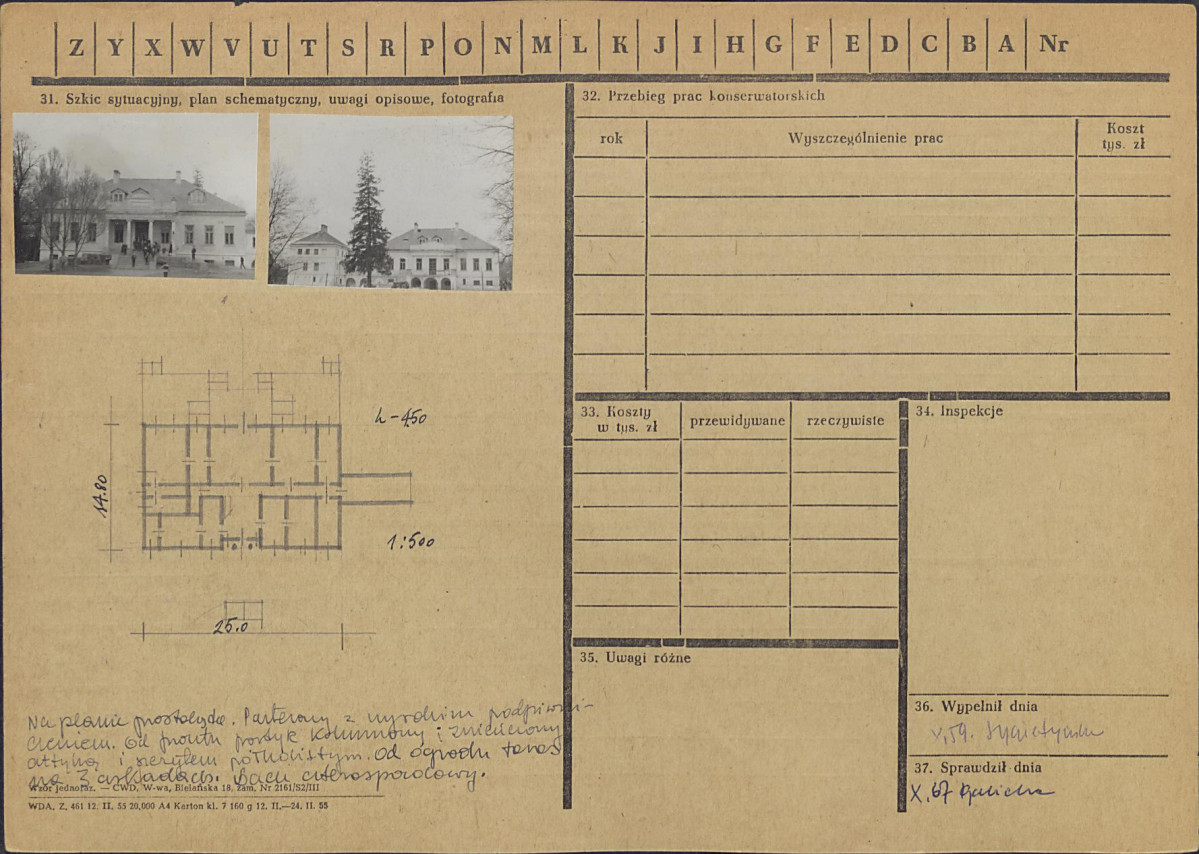 Z Y X W V U T S R P O N M L K J I H G F E D C B A Nr
31. Szkic sytuacyjny, plan schematyczny, uwagi opisowe, fotografia
h-450
14.80
1:500
25.0
Na planie prostokąta. Parterowy z wysokim podpiwni-
czeniem. Od frontu portyk kolumnowy; zwieńczony
attyką i szczytem półkolistym. Od ogrodu taras
na 3 arkadach. Dach czterospadowy.
Wzór jednoraz. — CWD, W-wa, Bielańska 18, zam. Nr 2161/S2/III
WDA, Z. 461 12. II. 55 20,000 A4 Karton kl. 7 160 g 12. II.—24. II. 55
32. Przebieg prac konserwatorskich
rok
Wyszczególnienie prac
Koszt
tys. zł
33. Koszty
w tys. zł
przewidywane
rzeczywiste
34. Inspekcje
35. Uwagi różne
36. Wypełnił dnia
V.59.
37. Sprawdził dnia
X.67